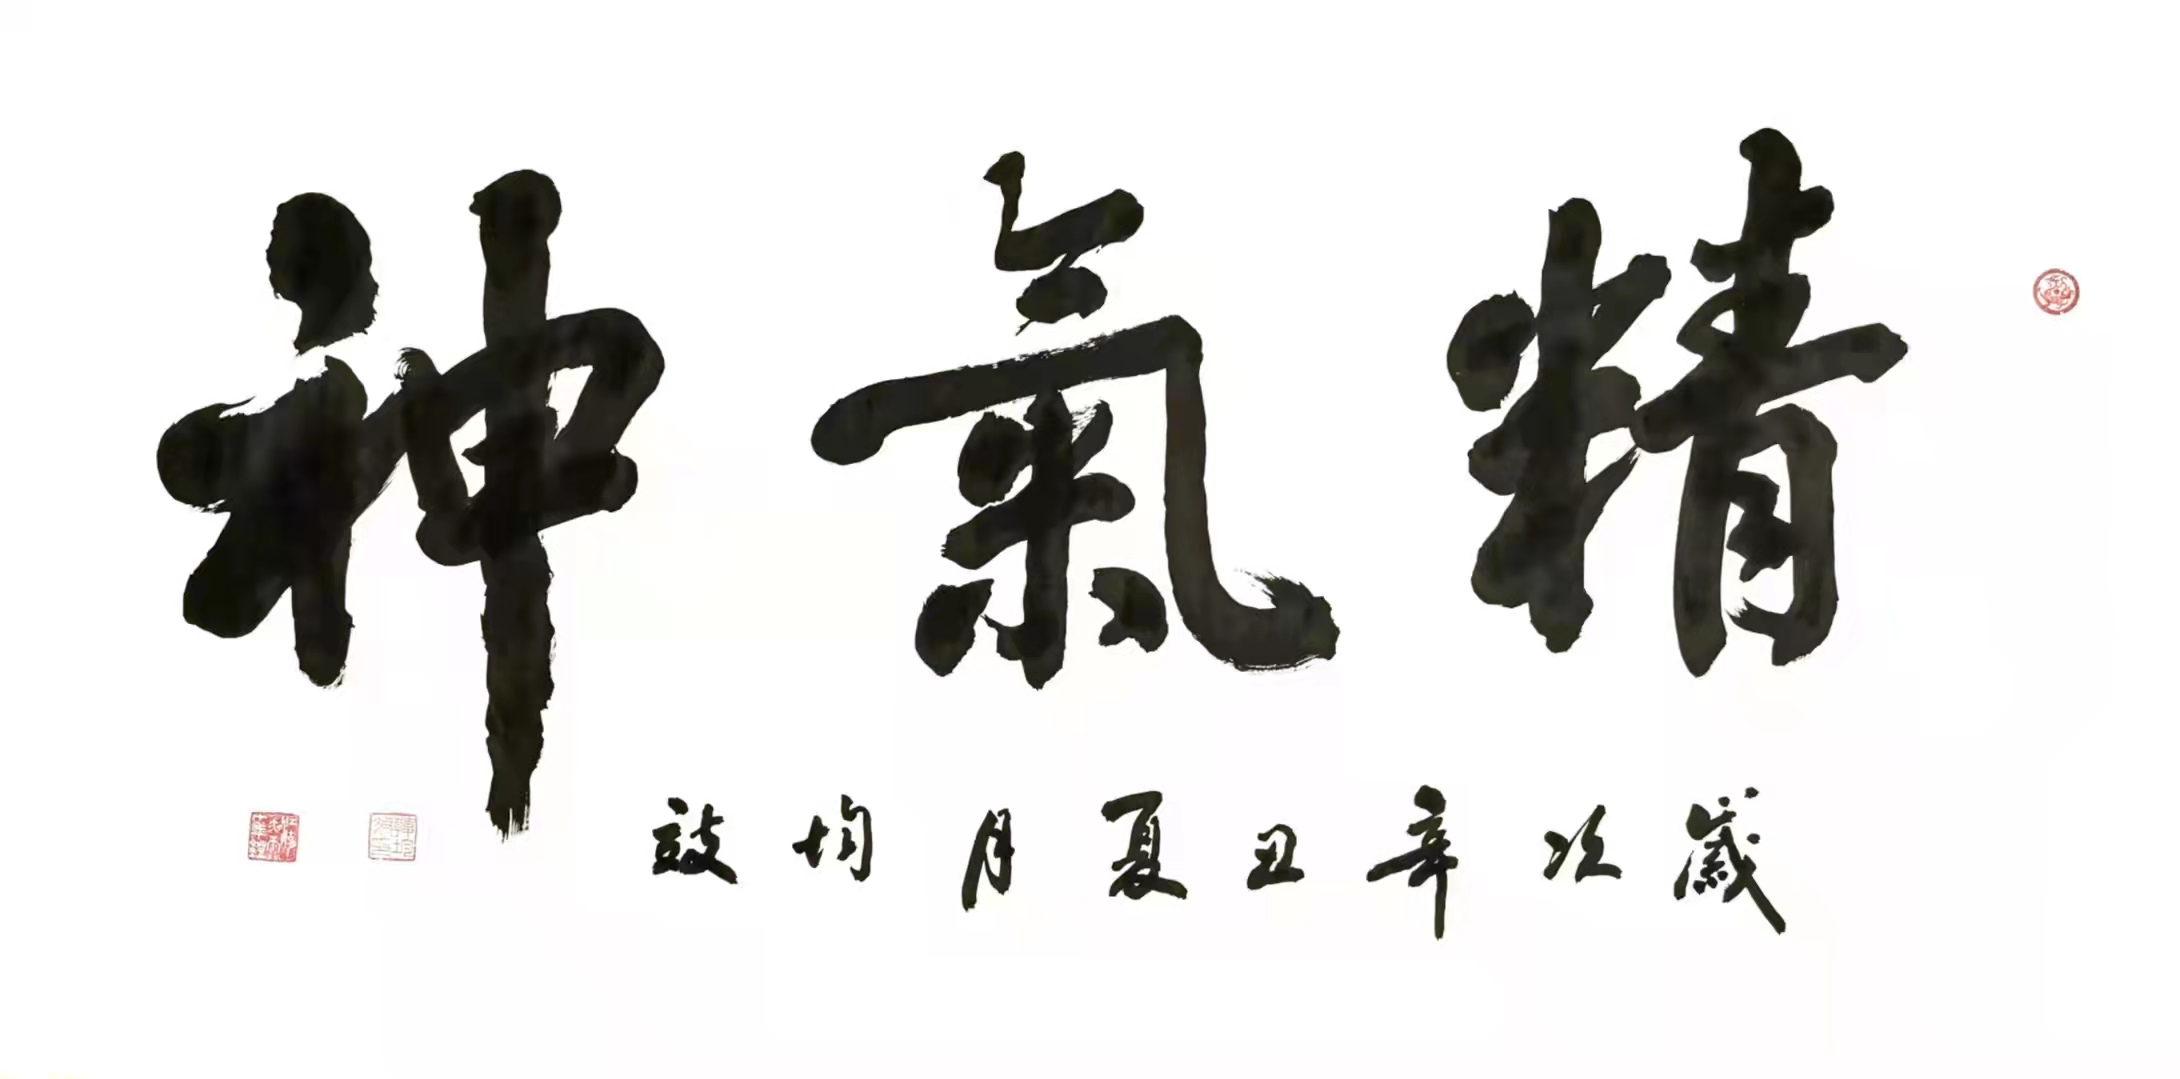 精氣神
歲次辛丑夏月均